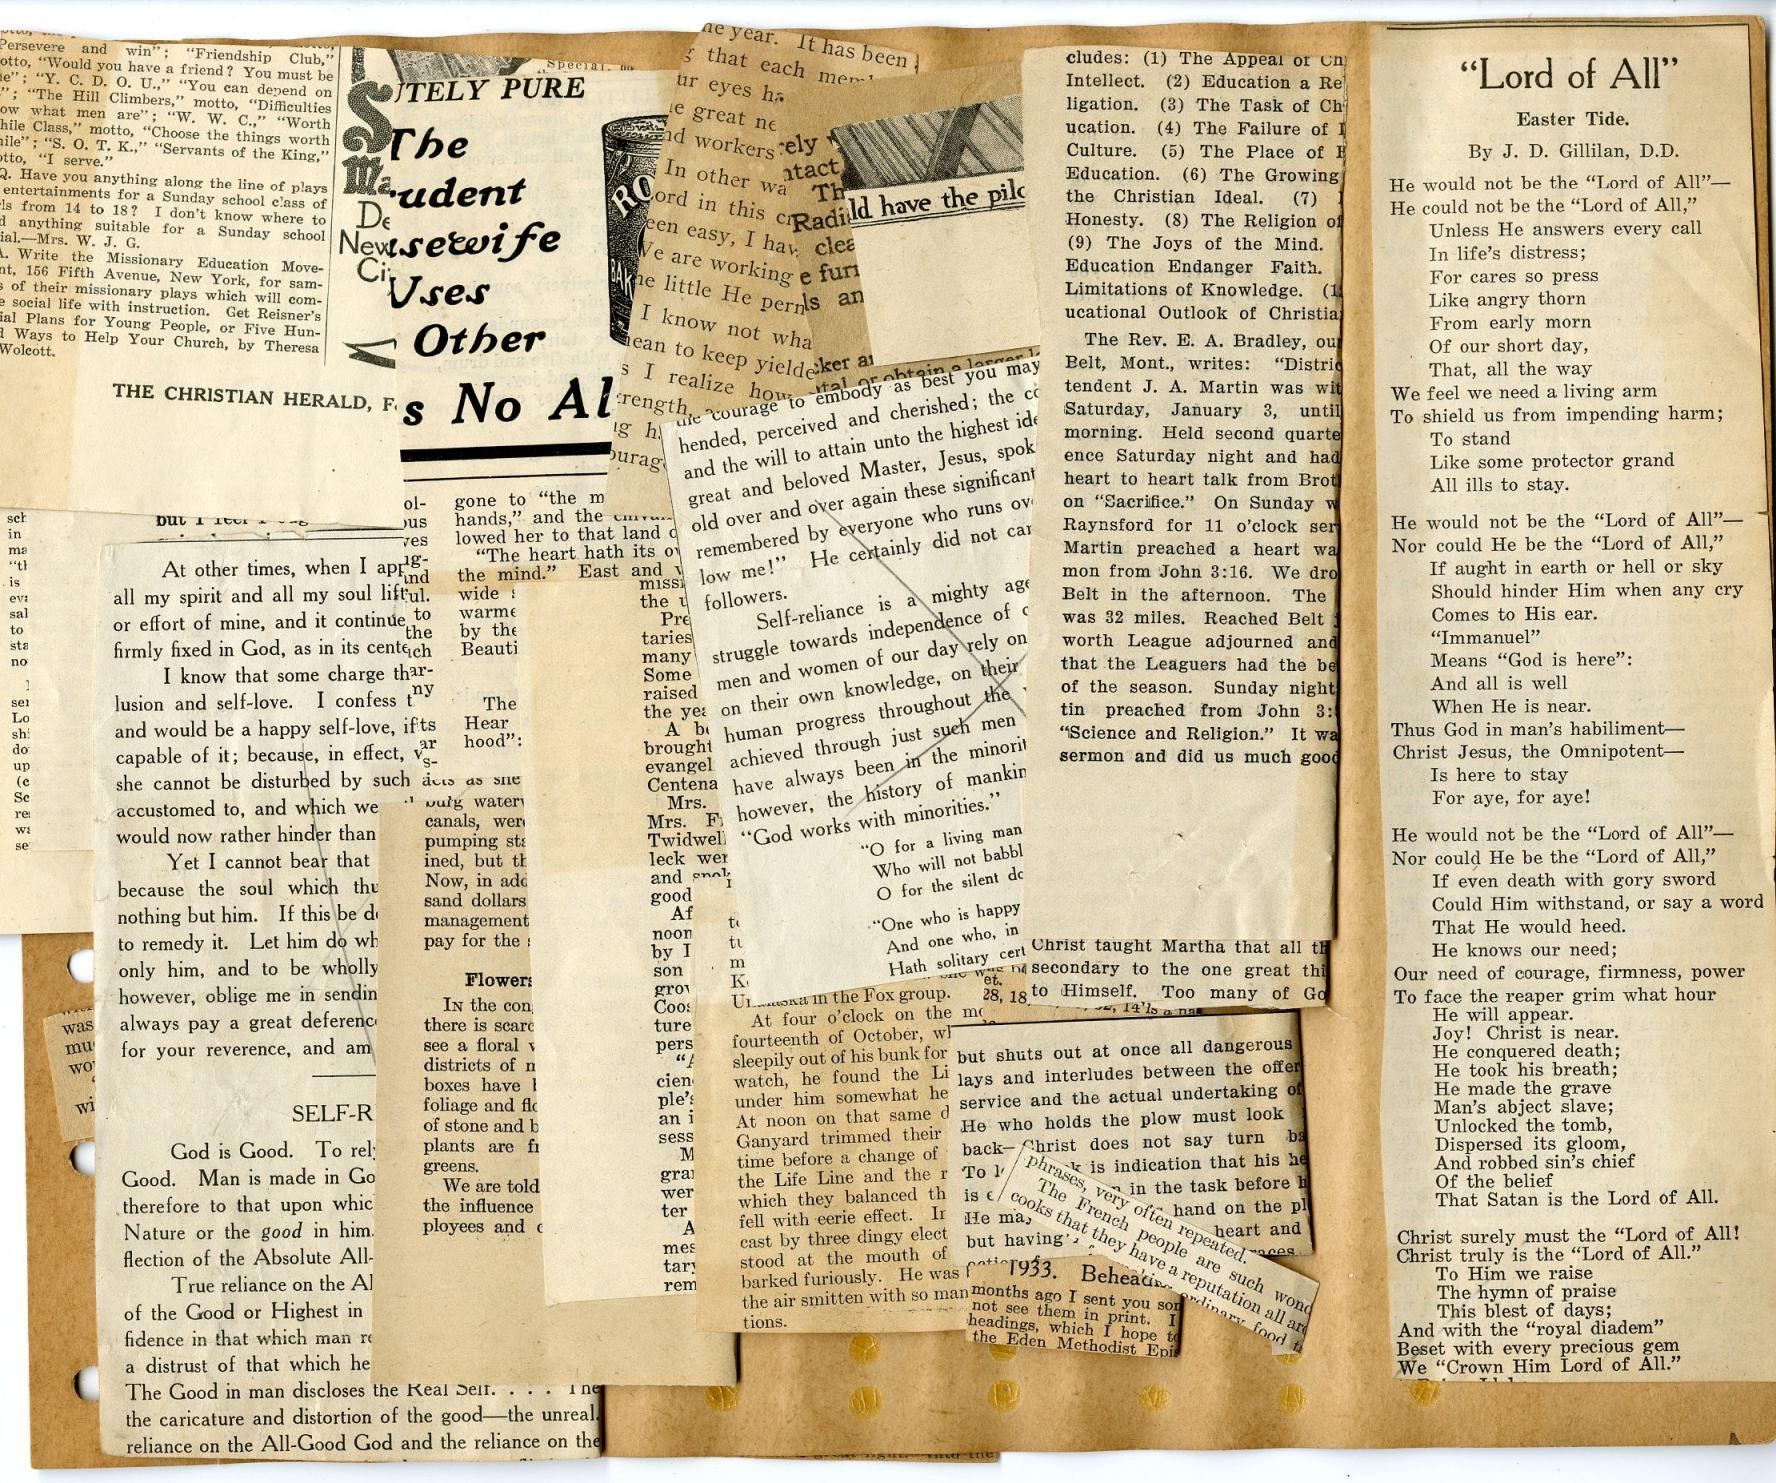 Persevere and win"; "Friendship Club,"
otto, "Would you have a friend? You must be
e"; "Y. C. D. O. U.," "You can depend on
"; "The Hill Climbers," motto, "Difficulties
ow what men are"; "W. W. C.," "Worth
hile Class," motto, "Choose the things worth
hile"; "S. O. T. K.," "Servants of the King,"
otto, "I serve."
Q. Have you anything along the line of plays
entertainments for a Sunday school class of
ls from 14 to 18? I don't know where to
d anything suitable for a Sunday school
ial.—Mrs. W. J. G.
A. Write the Missionary Education Move-
nt, 156 Fifth Avenue, New York, for sam-
s of their missionary plays which will com-
e social life with instruction. Get Reisner's
ial Plans for Young People, or Five Hun-
d Ways to Help Your Church, by Theresa
Wolcott.
THE CHRISTIAN HERALD, F
UTELY PURE
The
udent
usewife
Uses
Other
s No Al
RO
BAK
S
Ma
De
New
Ci
he year. It has been
that each mem
ur eyes ha
e great ne
nd workers
In other wa
ord in this cr
een easy, I hav
We are working
he little He perm
I know not wha
ean to keep yielde
s I realize how
trength,
ng h
ourag
rely
ntact
Th
Radi
clea
e furn
ls an
cker an
tal or obtain a larger l
ld have the pilo
but I feel I oug
At other times, when I app
all my spirit and all my soul lift
or effort of mine, and it continue
firmly fixed in God, as in its cente
I know that some charge tha
lusion and self-love. I confess t
and would be a happy self-love, if
capable of it; because, in effect,
she cannot be disturbed by such acts as she
accustomed to, and which we
would now rather hinder than
Yet I cannot bear that
because the soul which thu
nothing but him. If this be de
to remedy it. Let him do wh
only him, and to be wholly
however, oblige me in sendin
always pay a great deferenc
for your reverence, and am
SELF-R
God is Good. To rely
Good. Man is made in Go
therefore to that upon whic
Nature or the good in him.
flection of the Absolute All-
True reliance on the Al
of the Good or Highest in
fidence in that which man re
a distrust of that which he
The Good in man discloses the Real Self. . . . The
the caricature and distortion of the good—the unreal.
reliance on the All-Good God and the reliance on the
gone to "the m
hands," and the
lowed her to that land o
"The heart hath its ov
the mind." East and
wide
warme
by the
Beauti
The
Hear
hood":
burg water
canals, were
pumping sta
ined, but th
Now, in add
sand dollars
management
pay for the
Flowers
IN the con
there is scarc
see a floral
districts of m
boxes have
foliage and flo
of stone and b
plants are fr
greens.
We are told
the influence
ployees and
missi
the
Pre
taries
many
Some
raised
the yea
A be
brought
evangel
Centena
Mrs.
Mrs. F
Twidwell
leck wer
and spok
good
Af
noon
by I
son
grov
Coos
ture
pers
"A
cien
ple's
an i
sess
M
gran
wer
ter
A
mes
tary
rem
the courage to embody as best you may
hended, perceived and cherished; the co
and the will to attain unto the highest ide
great and beloved Master, Jesus, spok
old over and over again these significant
remembered by everyone who runs ov
low me!" He certainly did not car
followers.
Self-reliance is a mighty age
struggle towards independence of
men and women of our day rely on
on their own knowledge, on their
human progress throughout the
achieved through just such men
have always been in the minorit
however, the history of mankin
"God works with minorities."
"O for a living man
Who will not babbl
O for the silent do
"One who is happy
And one who, in
Hath solitary cert
in the Fox group.
At four o'clock on the
fourteenth of October, wh
sleepily out of his bunk for
watch, he found the Li
under him somewhat he
At noon on that same d
Ganyard trimmed their
time before a change of
the Life Line and the r
which they balanced th
fell with eerie effect. In
cast by three dingy elect
stood at the mouth of
barked furiously. He was f
the air smitten with so man
tions.
cludes: (1) The Appeal of Ch
Intellect. (2) Education a Re
ligation. (3) The Task of Ch
ucation. (4) The Failure of
Culture. (5) The Place of
Education. (6) The Growing
the Christian Ideal. (7)
Honesty. (8) The Religion of
(9) The Joys of the Mind.
Education Endanger Faith.
Limitations of Knowledge. (1
ucational Outlook of Christia
The Rev. E. A. Bradley, our
Belt, Mont., writes: "Distric
tendent J. A. Martin was wit
Saturday, January 3, until
morning. Held second quarte
ence Saturday night and had
heart to heart talk from Brot
on "Sacrifice." On Sunday w
Raynsford for 11 o'clock ser
Martin preached a heart wa
mon from John 3:16. We dro
Belt in the afternoon. The
was 32 miles. Reached Belt
worth League adjourned and
that the Leaguers had the be
of the season. Sunday night
tin preached from John 3:
"Science and Religion." It wa
sermon and did us much good
Christ taught Martha that all th
secondary to the one great thi
to Himself. Too many of Go
but shuts out at once all dangerous
lays and interludes between the offer
service and the actual undertaking of
He who holds the plow must look
back—Christ does not say turn ba
is indication that his he
in the task before h
hand on the pl
He may heart and
but having
phrases, very often repeated.
The French people are such wond
cooks that they have a reputation all aro
ordinary food
1933. Behead
months ago I sent you som
not see them in print. I
headings, which I hope to
the Eden Methodist Epis
"Lord of All"
Easter Tide.
By J. D. Gillilan, D.D.
He would not be the "Lord of All"—
He could not be the "Lord of All,"
Unless He answers every call
In life's distress;
For cares so press
Like angry thorn
From early morn
Of our short day,
That, all the way
We feel we need a living arm
To shield us from impending harm;
To stand
Like some protector grand
All ills to stay.
He would not be the "Lord of All"—
Nor could He be the "Lord of All,"
If aught in earth or hell or sky
Should hinder Him when any cry
Comes to His ear.
"Immanuel"
Means "God is here":
And all is well
When He is near.
Thus God in man's habiliment—
Christ Jesus, the Omnipotent—
Is here to stay
For aye, for aye!
He would not be the "Lord of All"—
Nor could He be the "Lord of All,"
If even death with gory sword
Could Him withstand, or say a word
That He would heed.
He knows our need;
Our need of courage, firmness, power
To face the reaper grim what hour
He will appear.
Joy! Christ is near.
He conquered death;
He took his breath;
He made the grave
Man's abject slave;
Unlocked the tomb,
Dispersed its gloom,
And robbed sin's chief
Of the belief
That Satan is the Lord of All.
Christ surely must the "Lord of All!
Christ truly is the "Lord of All."
To Him we raise
The hymn of praise
This blest of days;
And with the "royal diadem"
Beset with every precious gem
We "Crown Him Lord of All."